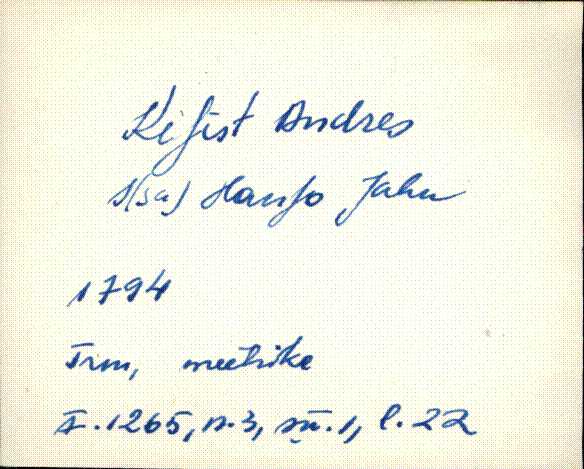 Kisist Andres
s(sa) Hanso Jahn
1794
Trm, meetrika
F. 1265, n. 3, sü. 1, l. 22